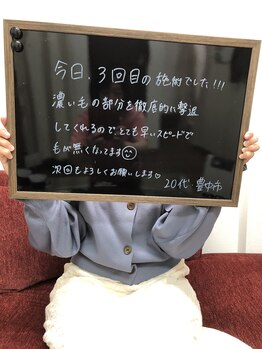 今日、3回目の施術でした!!!
濃い毛の部分を徹底的に撃退
してくれるので、とても早いスピードで
毛が無くなってます☺
次回もよろしくお願いします♡
20代 豊中市